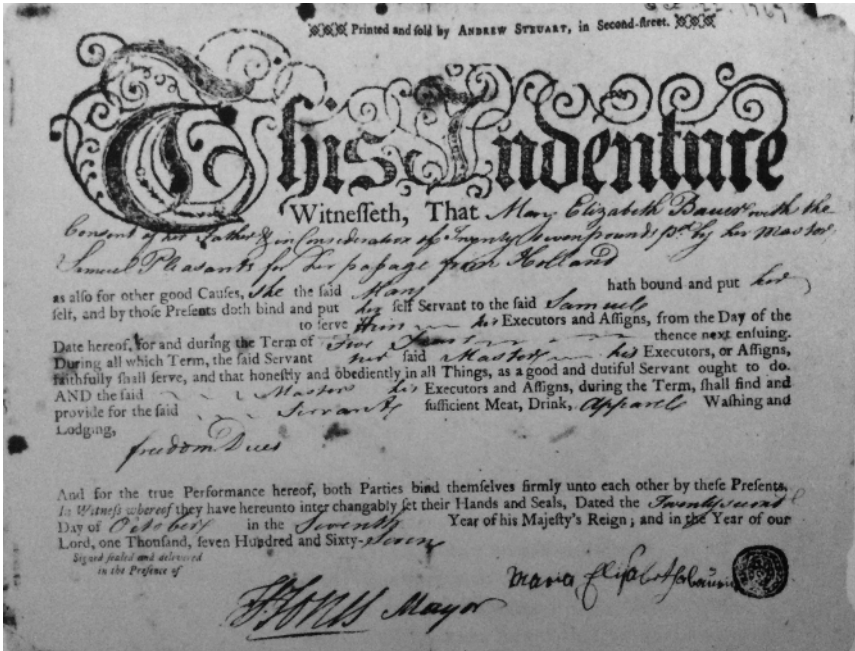 Printed and sold by ANDREW STEUART, in Second-street.
This Indenture
Witnesseth, That Mary Elizabeth Bauer with the
Consent of her Father & in Consideration of Twenty seven pounds pd. by her Master
Samuel Pleasants for her passage from Holland
as also for other good Causes, She the said Mary hath bound and put her
self, and by those Presents doth bind and put her self Servant to the said Samuel
to serve him his Executors and Assigns, from the Day of the
Date hereof, for and during the Term of Five Years thence next ensuing.
During all which Term, the said Servant her said Master his Executors, or Assigns,
faithfully shall serve, and that honestly and obediently in all Things, as a good and dutiful Servant ought to do.
AND the said Master his Executors and Assigns, during the Term, shall find and
provide for the said Servant sufficient Meat, Drink, Apparel Washing and
Lodging,
freedom Dues
And for the true Performance hereof, both Parties bind themselves firmly unto each other by these Presents,
In Witness whereof they have hereunto interchangably set their Hands and Seals, Dated the Twenty second
Day of October in the Seventh Year of his Majesty's Reign; and in the Year of our
Lord, one Thousand, seven Hundred and Sixty-Seven
Signed sealed and delivered
in the Presence of
Maria Elisabetha
Mayor